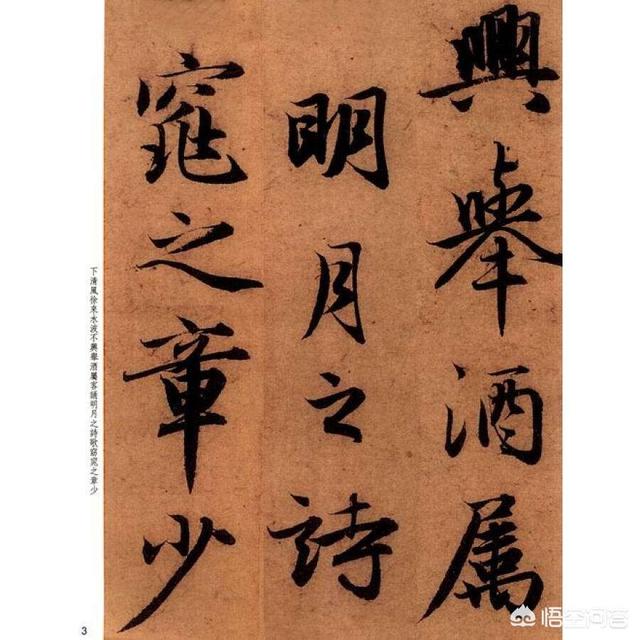 興舉酒属
明月之詩
窕之章少
下清風徐來水波不興舉酒屬客誦明月之詩歌窈窕之章少
3
悟空问答